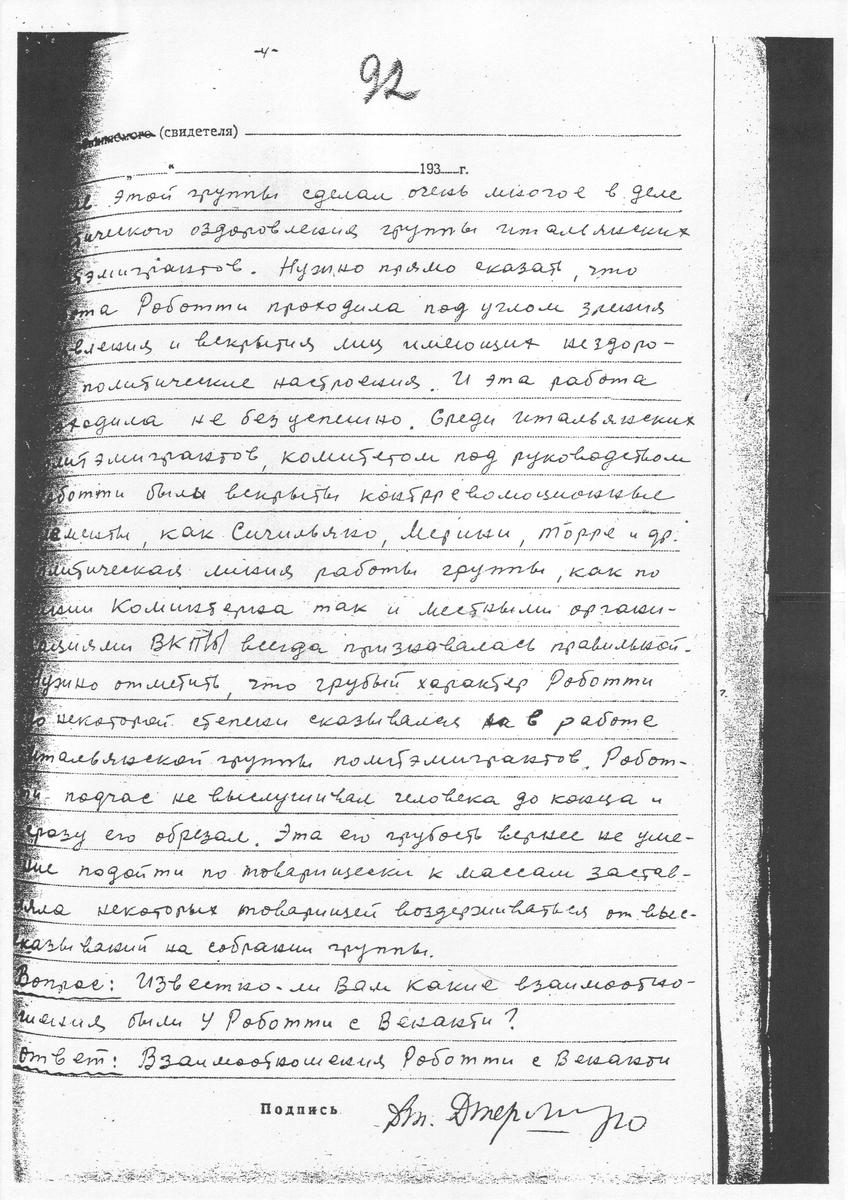 -4-
92
(свидетеля)
„ “ 193 г.
этой группы сделал очень многое в деле
ического оздоровления группы итальянских
тэмигрантов. Нужно прямо сказать, что
ота Роботти проходила под углом зрения
вления и вскрытия лиц имеющих нездоро-
политические настроения. И эта работа
ходила не без успешно. Среди итальянских
литэмигрантов, комитетом под руководством
оботти были вскрыты контрреволюционные
лементы, как Сичильяно, Мерини, Торре и др.
литическая линия работы группы, как по
линии Коминтерна так и местными органи-
зациями ВКП/б/ всегда признавалась правильной.
Нужно отметить, что грубый характер Роботти
до некоторой степени сказывался на в работе
итальянской группы политэмигрантов. Робот-
ти подчас не выслушивал человека до конца и
сразу его обрезал. Эта его грубость вернее не уме-
ние подойти по товарищески к массам застав-
ляла некоторых товарищей воздерживаться от выс-
казываний на собрании группы.
Вопрос: Известно-ли Вам какие взаимоотно-
шения были у Роботти с Венанти?
Ответ: Взаимоотношения Роботти с Венанти
Подпись